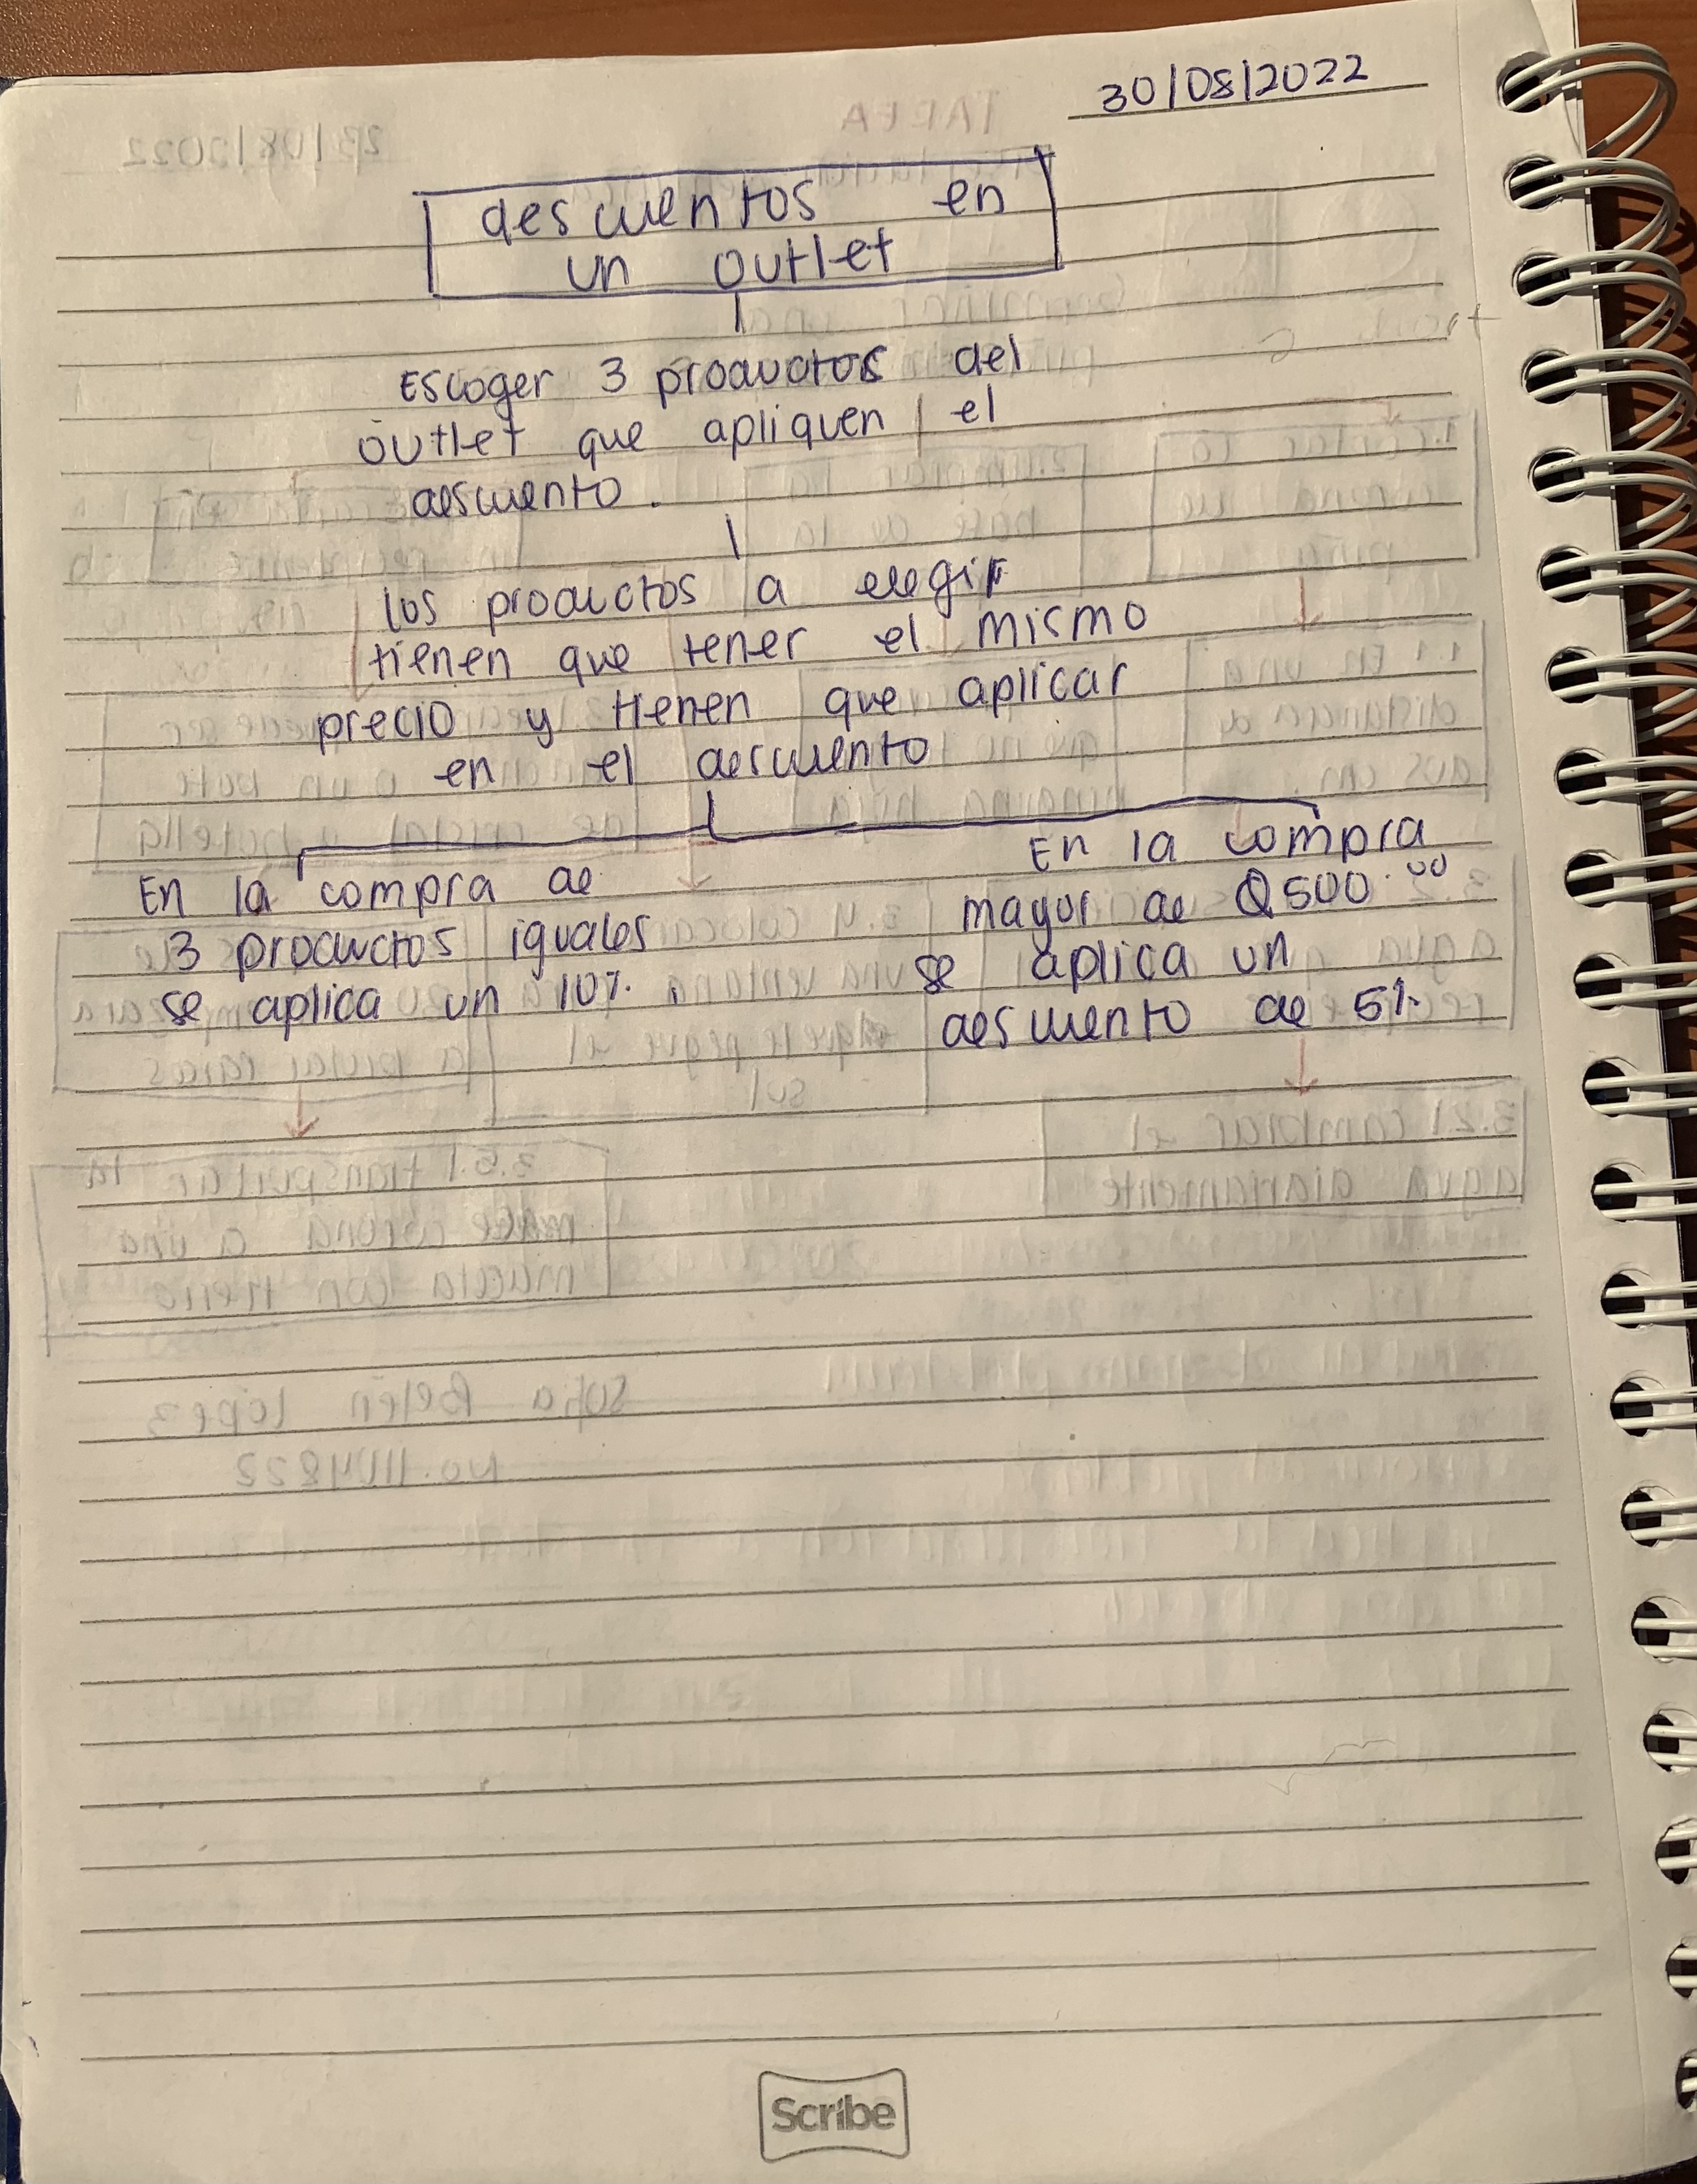 30/08/2022
descuentos en
un outlet
Escoger 3 productos del
outlet que apliquen el
descuento.
los productos a elegir
tienen que tener el mismo
precio y tienen que aplicar
en el descuento
En la compra de
3 productos iguales
se aplica un 10%.
En la compra
mayor de Q500.00
se aplica un
descuento de 5%
Scribe